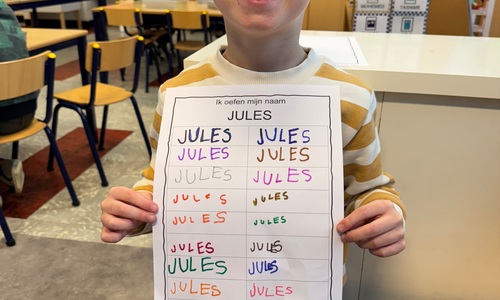 Ik oefen mijn naam
JULES
JULES JULES
JULES JULES
JULES JULES
JULES JULES
JULES JULES
JULES JULES
JULES JULES
JULES JULES